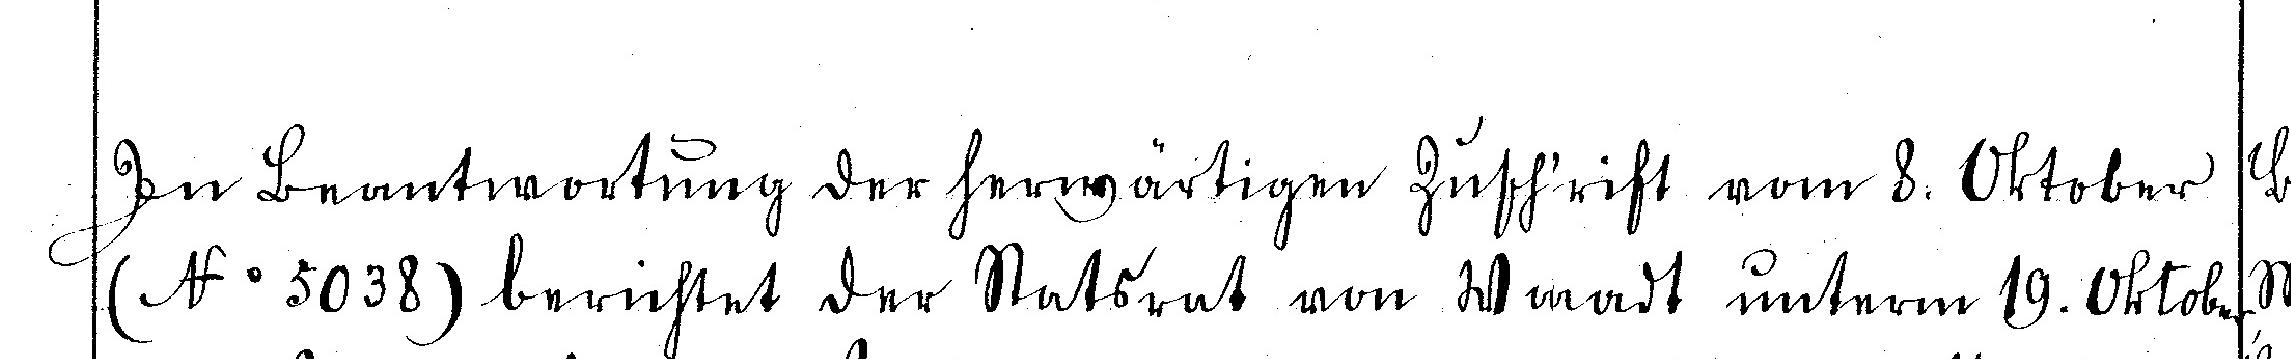 In Beantwortung der herwärtigen Zuschrift vom 8. Oktober
(N° 5038) berichtet der Statsrat von Waadt unterm 19. Oktober